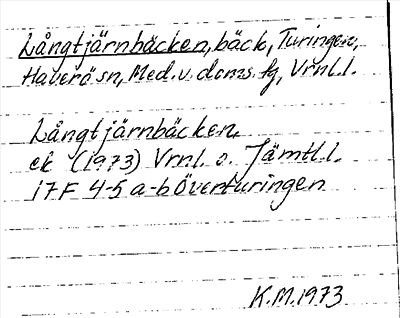 Långtjärnbäcken, bäck, Turingen,
Haverö sn, Med.v. doms. fg, Vrnl.l.
Långtjärnbäcken.
ek (1973) Vrnl. o. Jämtl.l.
17F 4-5 a-b Överturingen
K.M.1973